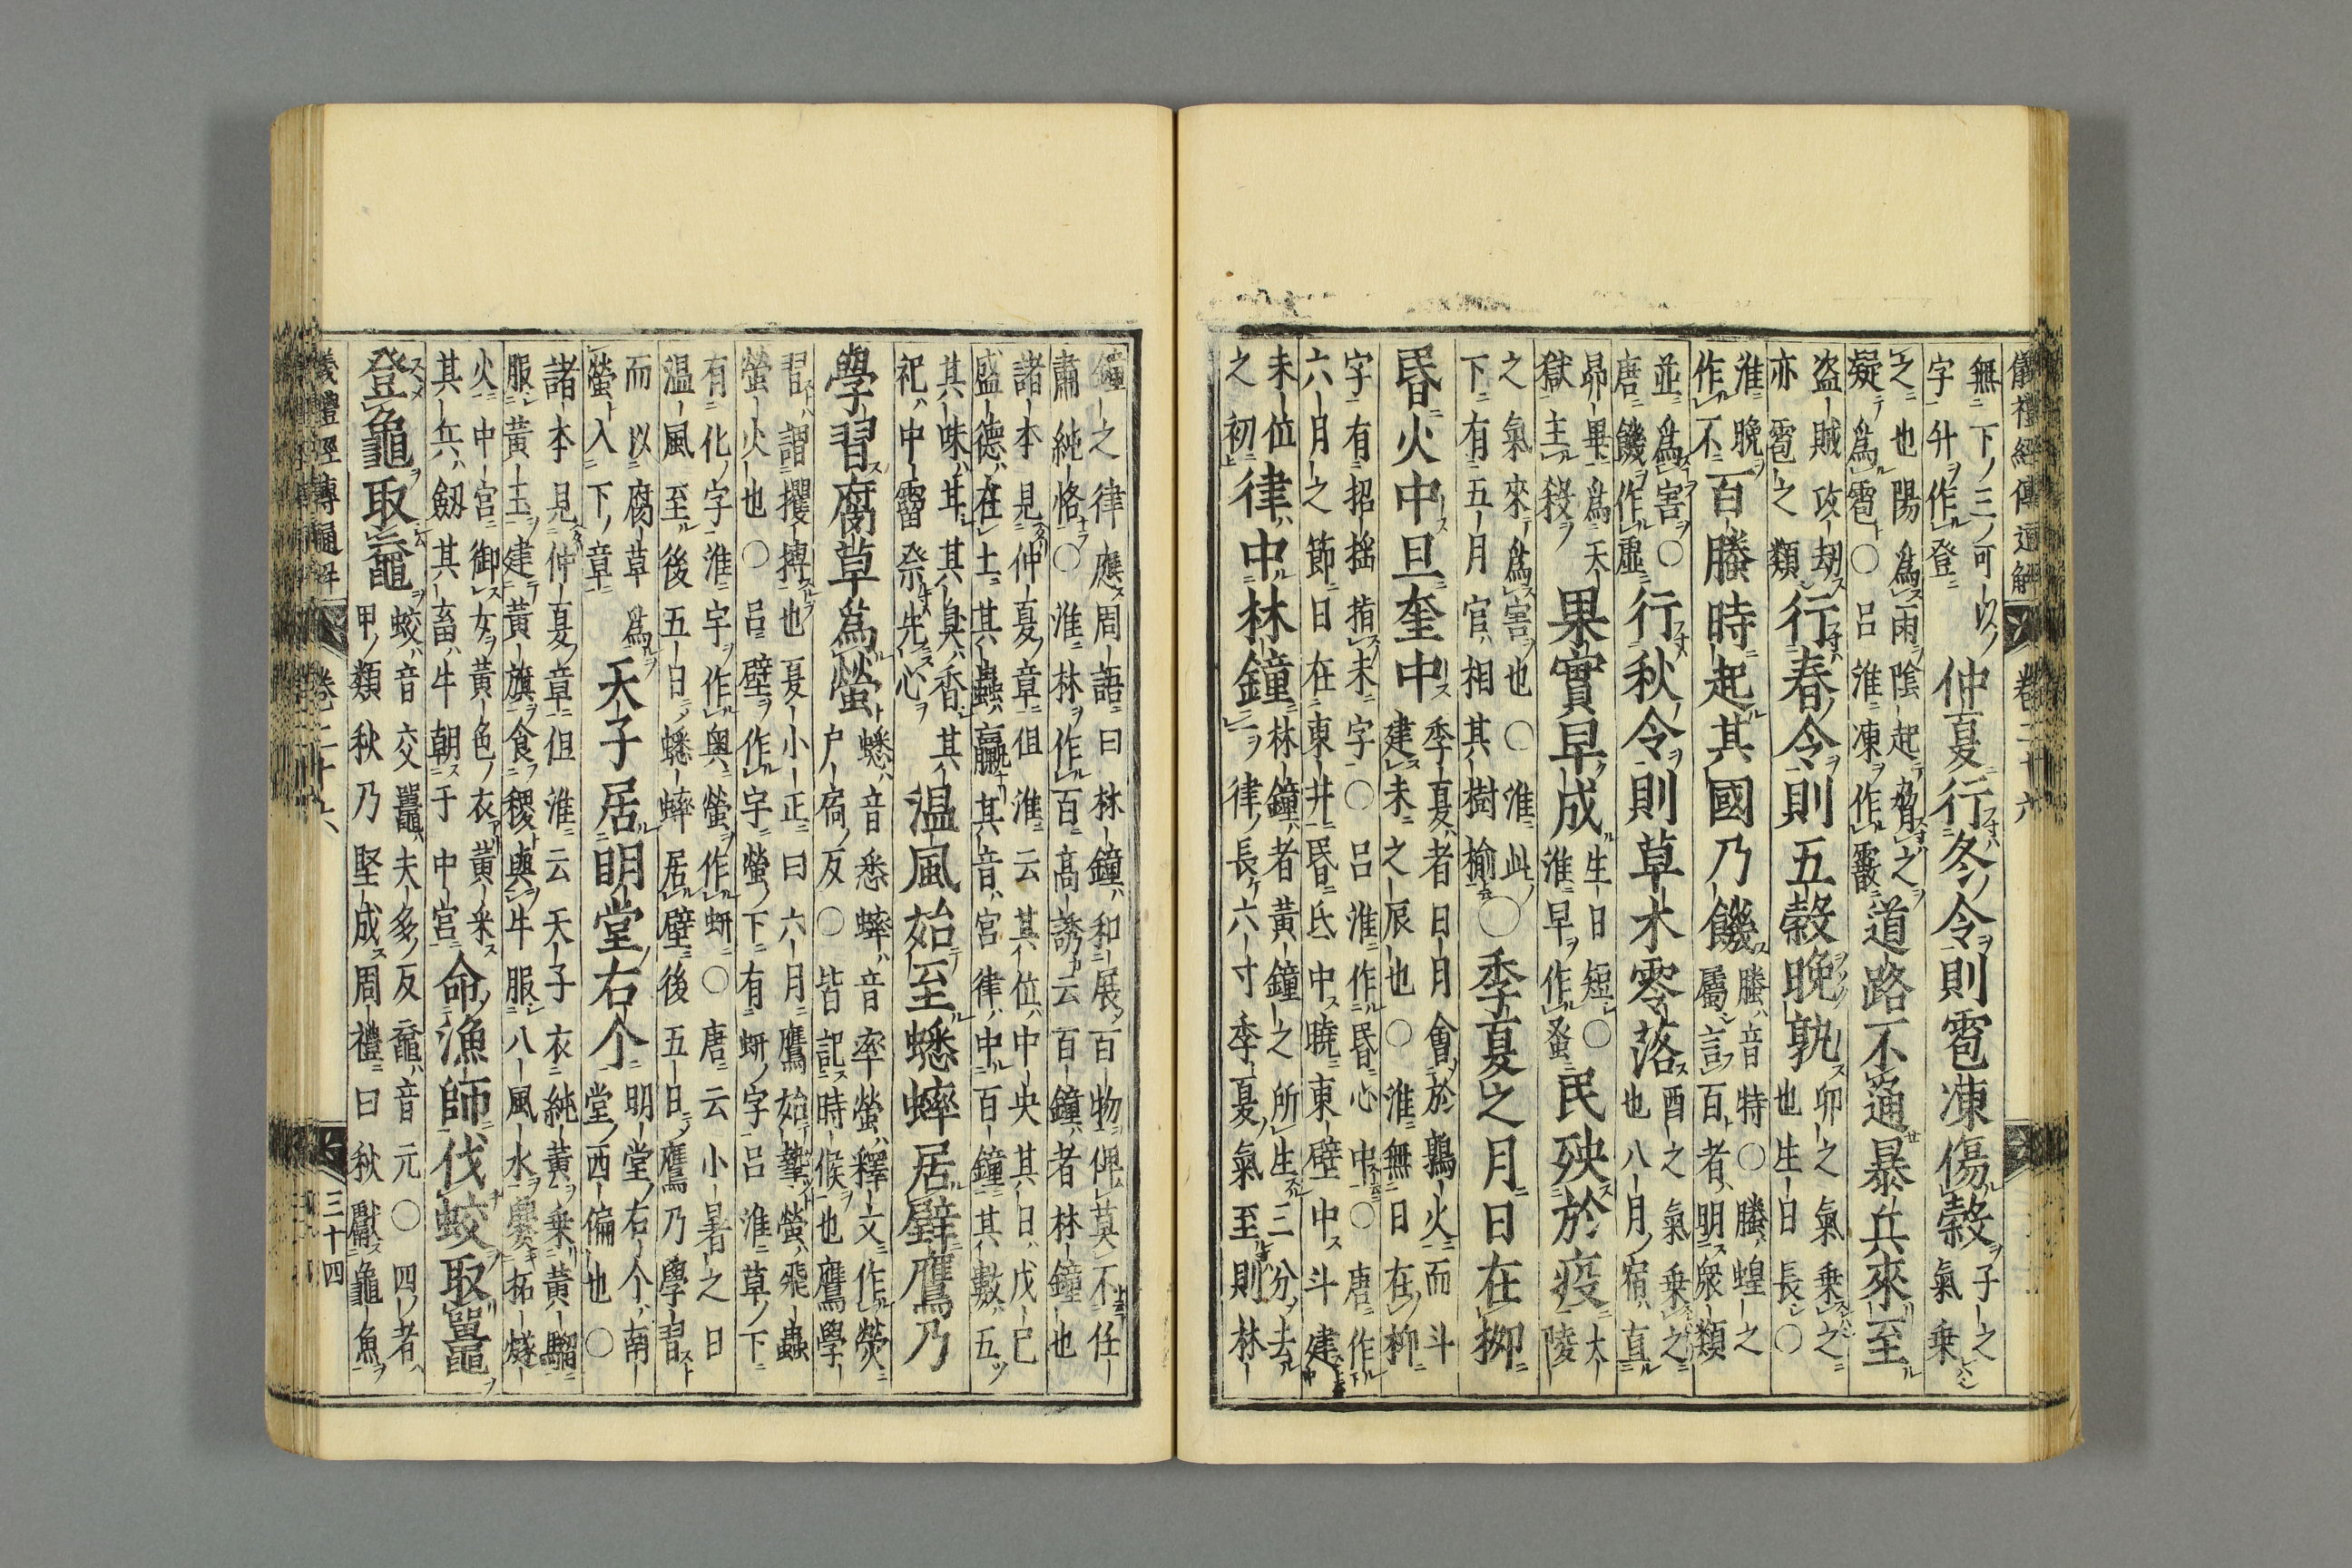 儀禮經傳通解 卷二十六
無下三可以
字升作登
仲夏行冬令則雹凍傷穀
子之
氣乗
之也陽為雨陰起脅之
凝為雹○呂淮凍作霰
道路不通暴兵來至
盗賊攻劫
亦雹之類
行春令則五穀晚孰
卯之氣乗之
也生日長○
淮晩
作不
百螣時起其國乃饑
螣音特○螣蝗之
屬言百者明衆類
並為害○
唐饑作虛
行秋令則草木零落
酉之氣乗之
也八月宿直
昴畢為天
獄主殺
果實早成
生日短○
淮早作蚤
民殃於疫
大
陵
之氣來為害也○淮此
下有五月官相其樹榆○
季夏之月日在栁
昏火中旦奎中
季夏者日月會於鶉火而斗
建未之辰也○淮無日在栁
字有招揺指未字○呂淮作昏心中○唐作
六月之節日在東井昏氐中曉東壁中斗建
未位
之初
律中林鐘
林鐘者黃鐘之所生三分去
律長六寸季夏氣至則林
鐘之律應周語曰林鐘和展百物俾莫不任
肅純恪○淮林作百高誘云百鐘者林鐘也
諸本見仲夏章但淮云其位中央其日戊已
盛德在土其蟲蠃其音宮律中百鐘其數五
其味甘其臭香其
祀中霤祭先心
温風始至蟋蟀居壁鷹乃
學習腐草為螢
蟋音悉蟀音率螢釋文作熒
户扃反○皆記時候也鷹學
習謂攫搏也夏小正曰六月鷹始摯螢飛蟲
螢火也○呂壁作宇螢下有蚈字呂淮草下
有化字淮宇作奥螢作蚈○唐云小暑之日
温風至後五日蟋蟀居壁後五日鷹乃學習
而以腐草為
螢入下章
天子居明堂右个
明堂右个南
堂西偏也○
諸本見仲夏章但淮云天子衣純黃乗黃騮
服黃玉建黃旗食稷與牛服八風水爨柘燧
火中宮御女黃色衣黃采
其兵劒其畜牛朝于中宮
命漁師伐蛟取鼉
登龜取黿
蛟音交鼉夫多反黿音元○四者
甲類秋乃堅成周禮曰秋獻龜魚
儀禮經傳通解 卷二十六 三十四